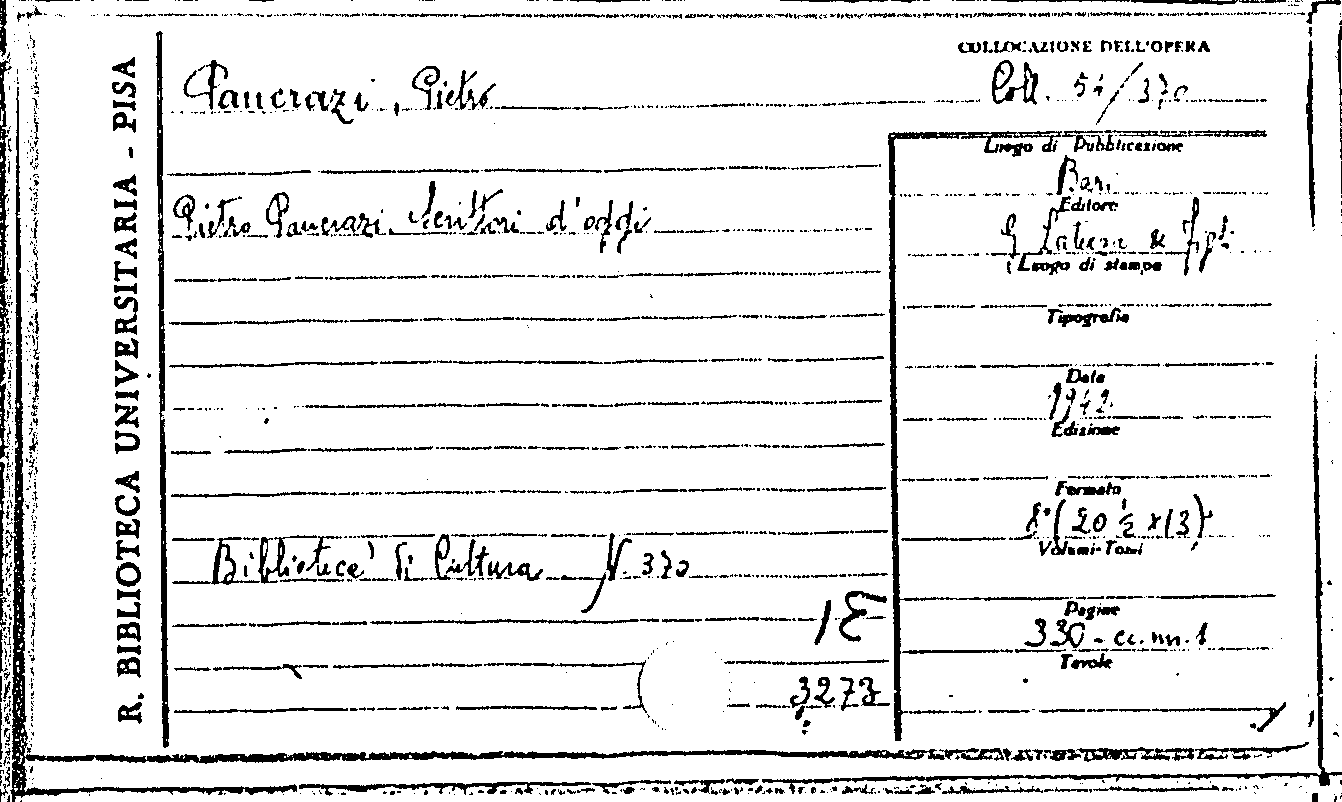 R. BIBLIOTECA UNIVERSITARIA - PISA
COLLOCAZIONE DELL'OPERA
Pancrazi, Pietro
Coll. 54/370
Luogo di Pubblicazione
Bari
Pietro Pancrazi. Scrittori d'oggi
Editore
G Laterza & Figli
Luogo di stampa
Tipografia
Data
1942
Edizione
Formato
8° (20 ½ x 13)
Volumi-Tomi
Biblioteca di Cultura N. 370
Pagine
330 - cc. nn. 1
Tavole
3273